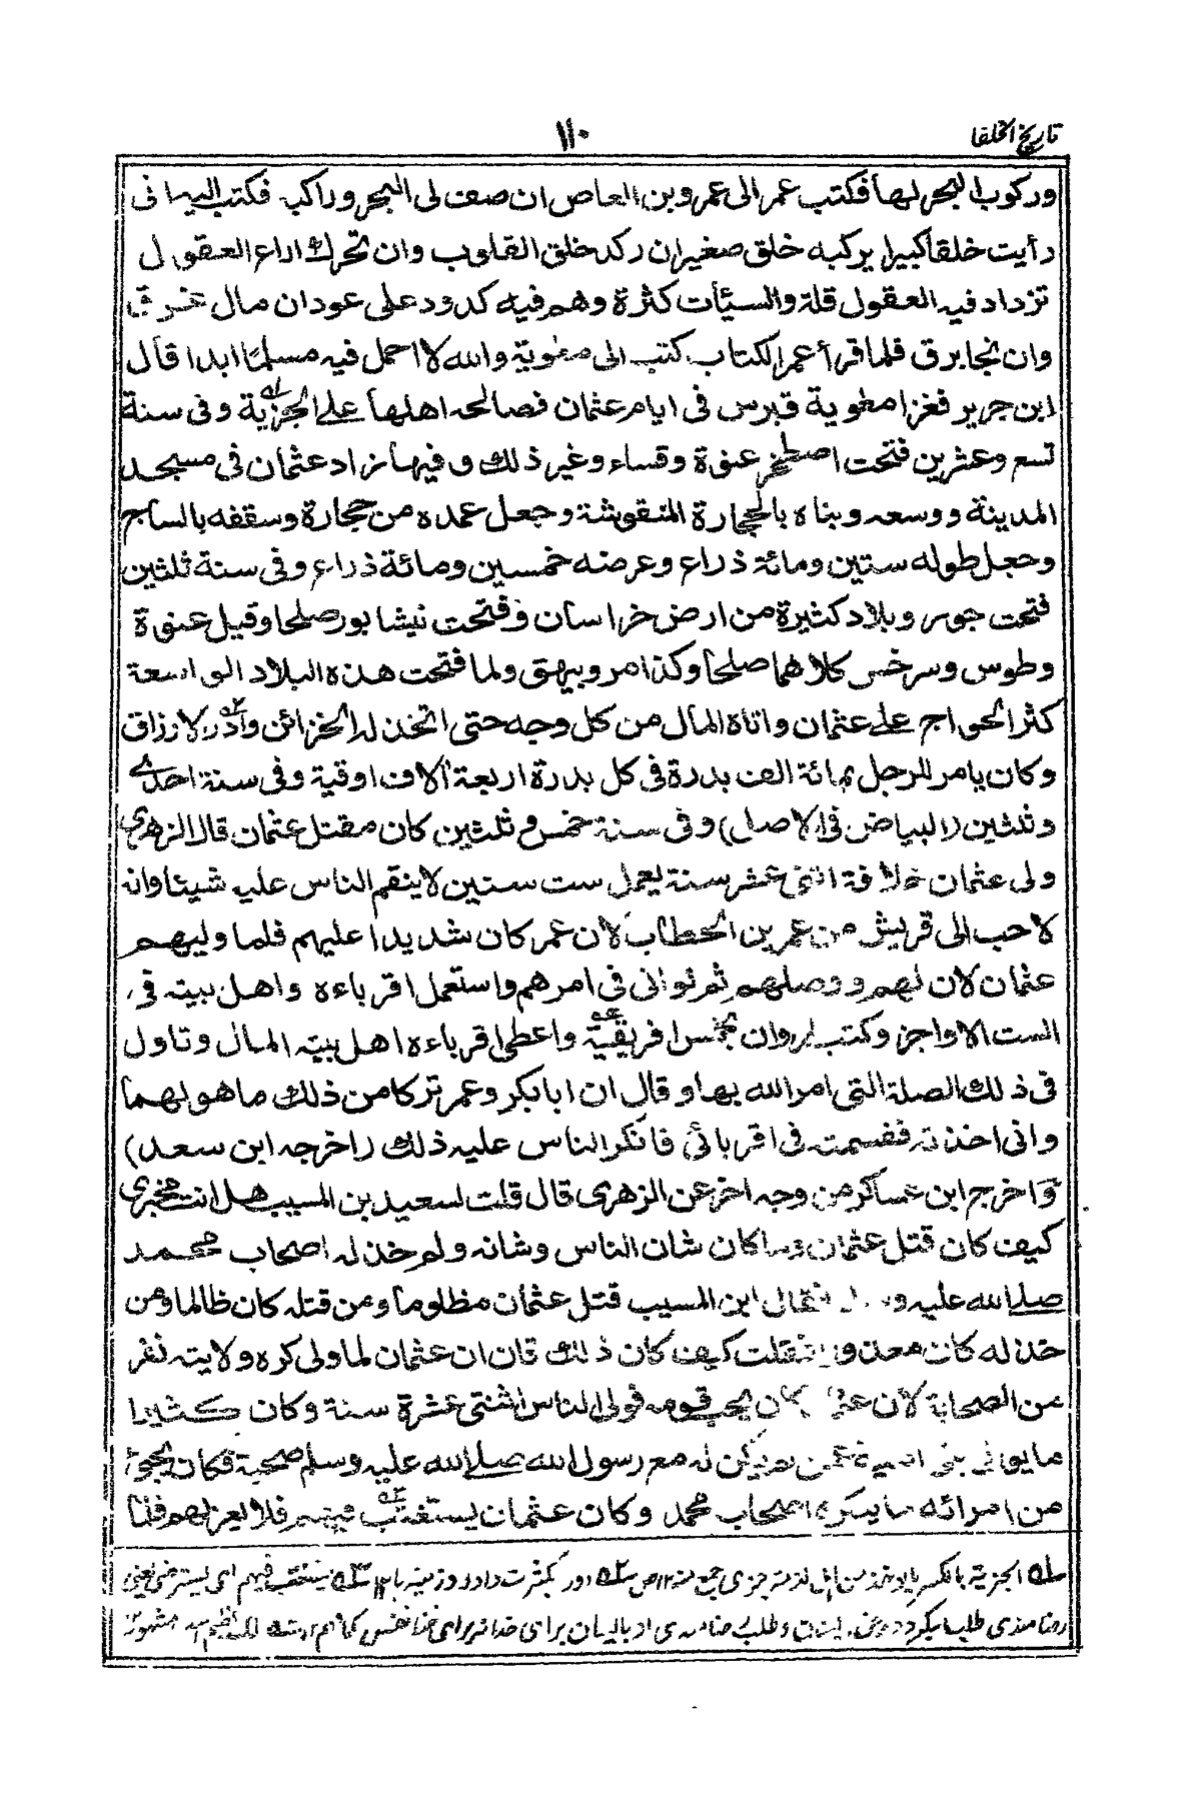 تاريخ الخلفا
١١٠
وركوب البحر لها فكتب عمر الى عمرو بن العاص ان صف لى البحر وراكبه فكتب اليه انى
رأيت خلقا كبيرا يركبه خلق صغير ان ركد خلق القلوب وان تحرك اراع العقول
تزداد فيه العقول قلة والسيئات كثرة وهم فيه كدود على عود ان مال غرق
وان نجا برق فلما قرأ عمر الكتاب كتب الى معوية والله لا احمل فيه مسلما ابدا قال
ابن جرير فغزا معوية قبرس فى ايام عثمان فصالحه اهلها على الجزية وفى سنة
تسع وعشرين فتحت اصطخر عنوة وقساء وغير ذلك وفيها زاد عثمان فى مسجد
المدينة ووسعه وبناه بالحجارة المنقوشة وجعل عمده من حجارة وسقفه بالساج
وجعل طوله ستين ومائة ذراع وعرضه خمسين ومائة ذراع وفى سنة ثلثين
فتحت جور وبلاد كثيرة من ارض خراسان وفتحت نيشابور صلحا وقيل عنوة
وطوس وسرخس كلاهما صلحا وكذا مرو وبيهق ولما فتحت هذه البلاد الواسعة
كثر الخراج على عثمان واتاه المال من كل وجه حتى اتخذ له الخزائن وأدر الارزاق
وكان يامر للرجل بمائة الف بدرة فى كل بدرة اربعة آلاف اوقية وفى سنة احدى
وثلثين (البياض فى الاصل) وفى سنة خمس وثلثين كان مقتل عثمان قال الزهرى
ولى عثمان خلافة اثنى عشر سنة يعمل ست سنين لا ينقم الناس عليه شيئا وانه
لاحب الى قريش من عمر بن الخطاب لان عمر كان شديدا عليهم فلما وليهم
عثمان لان لهم ووصلهم ثم توانى فى امرهم واستعمل اقرباءه واهل بيته فى
الست الاواخر وكتب لمروان بخمس افريقية واعطى اقرباءه اهل بيته المال وتاول
فى ذلك الصلة التى امر الله بها وقال ان ابا بكر وعمر تركا من ذلك ما هو لهما
وانى اخذته فقسمته فى اقربائى فانكر الناس عليه ذلك (اخرجه ابن سعد)
واخرج ابن عساكر من وجه اخر عن الزهرى قال قلت لسعيد بن المسيب هل انت مخبرى
كيف كان قتل عثمان وما كان شان الناس وشانه ولم خذله اصحاب محمد
صلى الله عليه فقال ابن المسيب قتل عثمان مظلوما ومن قتله كان ظالما ومن
خذله كان معذورا فقلت كيف كان ذلك قال ان عثمان لما ولى كره ولايته نفر
من الصحابة لان عثمان كان يحب قومه فولى الناس اثنتى عشرة سنة وكان كثيرا
ما يولى بنى امية ممن لم يكن له مع رسول الله صلى الله عليه وسلم صحبة فكان يجئ
من امرائه ما ينكره اصحاب محمد وكان عثمان يستعتب فيهم فلا يعزلهم فلما
الجزية بالكسر